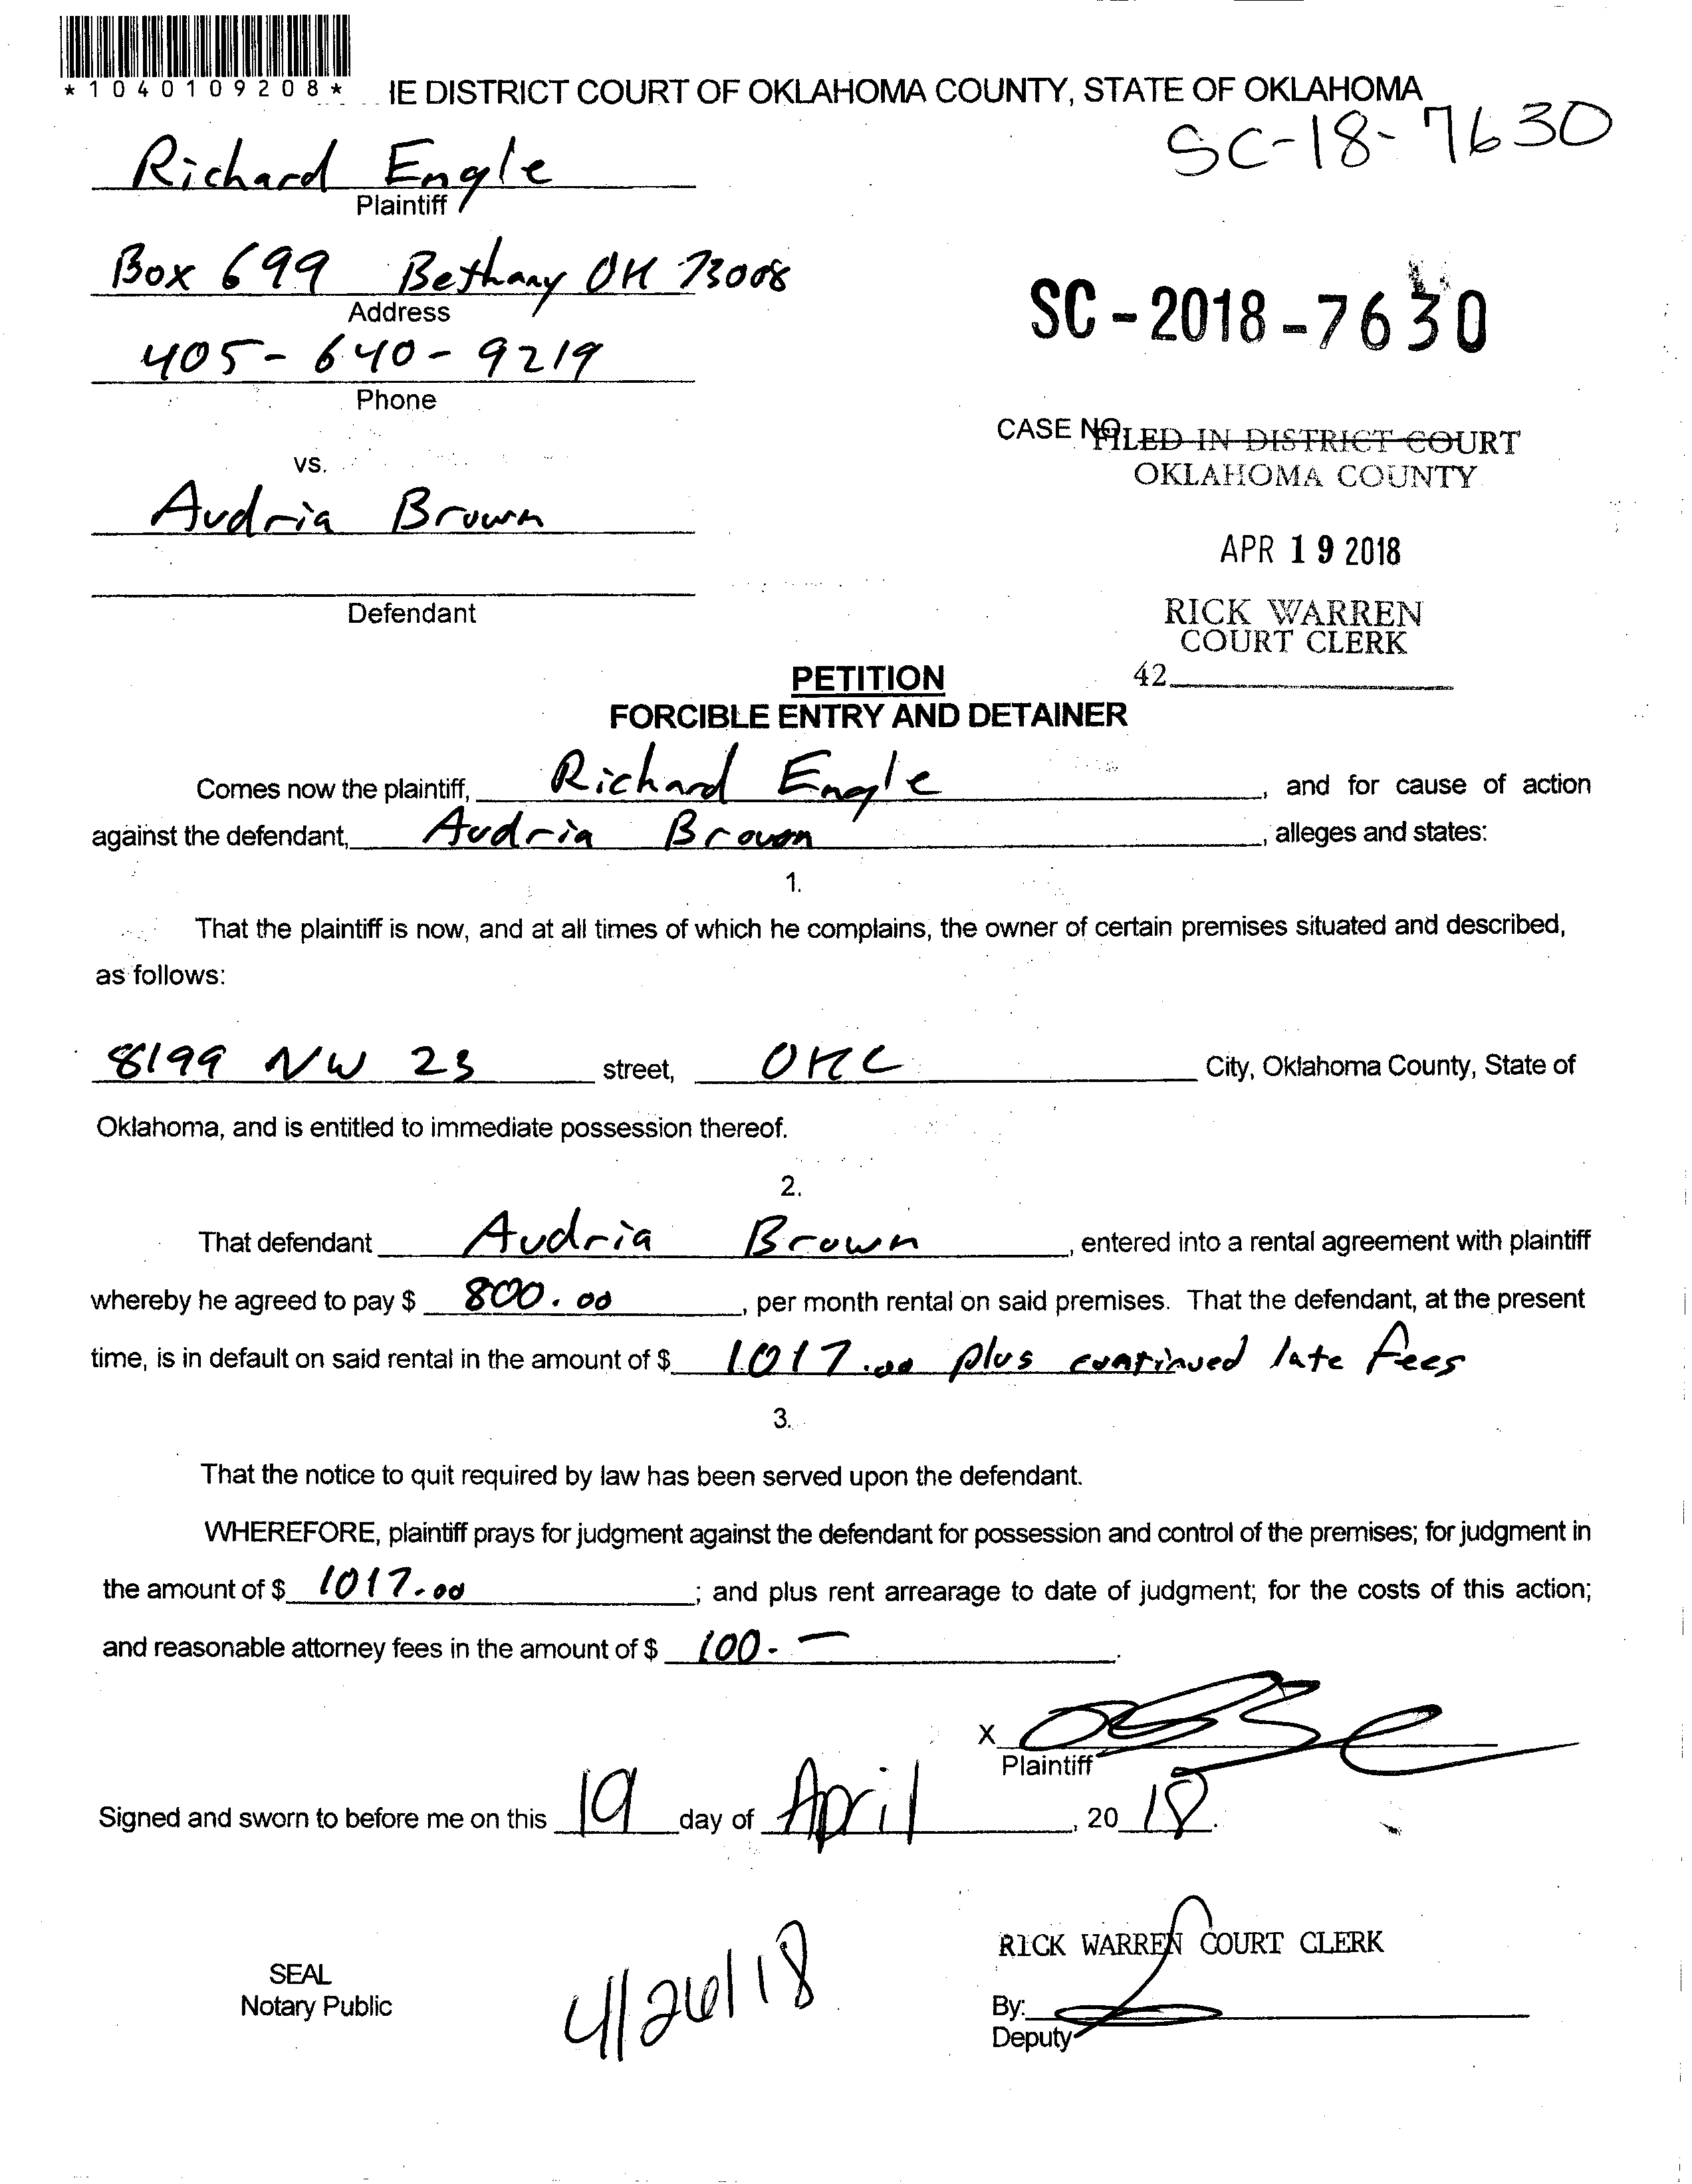 *1040109208*
IE DISTRICT COURT OF OKLAHOMA COUNTY, STATE OF OKLAHOMA
SC-18-7630
Richard Engle
Plaintiff
Box 699 Bethany OK 73008
Address
SC-2018-7630
405-640-9219
Phone
CASE NO.
FILED IN DISTRICT COURT
OKLAHOMA COUNTY
vs.
Audria Brown
APR 19 2018
Defendant
RICK WARREN
COURT CLERK
42
PETITION
FORCIBLE ENTRY AND DETAINER
Comes now the plaintiff, Richard Engle, and for cause of action
against the defendant, Audria Brown, alleges and states:
1.
That the plaintiff is now, and at all times of which he complains, the owner of certain premises situated and described,
as follows:
8199 NW 23 street, OKC City, Oklahoma County, State of
Oklahoma, and is entitled to immediate possession thereof.
2.
That defendant Audria Brown, entered into a rental agreement with plaintiff
whereby he agreed to pay $ 800.00, per month rental on said premises. That the defendant, at the present
time, is in default on said rental in the amount of $ 1017.00 plus continued late fees
3.
That the notice to quit required by law has been served upon the defendant.
WHEREFORE, plaintiff prays for judgment against the defendant for possession and control of the premises; for judgment in
the amount of $ 1017.00; and plus rent arrearage to date of judgment; for the costs of this action;
and reasonable attorney fees in the amount of $ 100.-.
X
Plaintiff
Signed and sworn to before me on this 19 day of April, 2018.
RICK WARREN COURT CLERK
SEAL
Notary Public
4/26/18
By:
Deputy